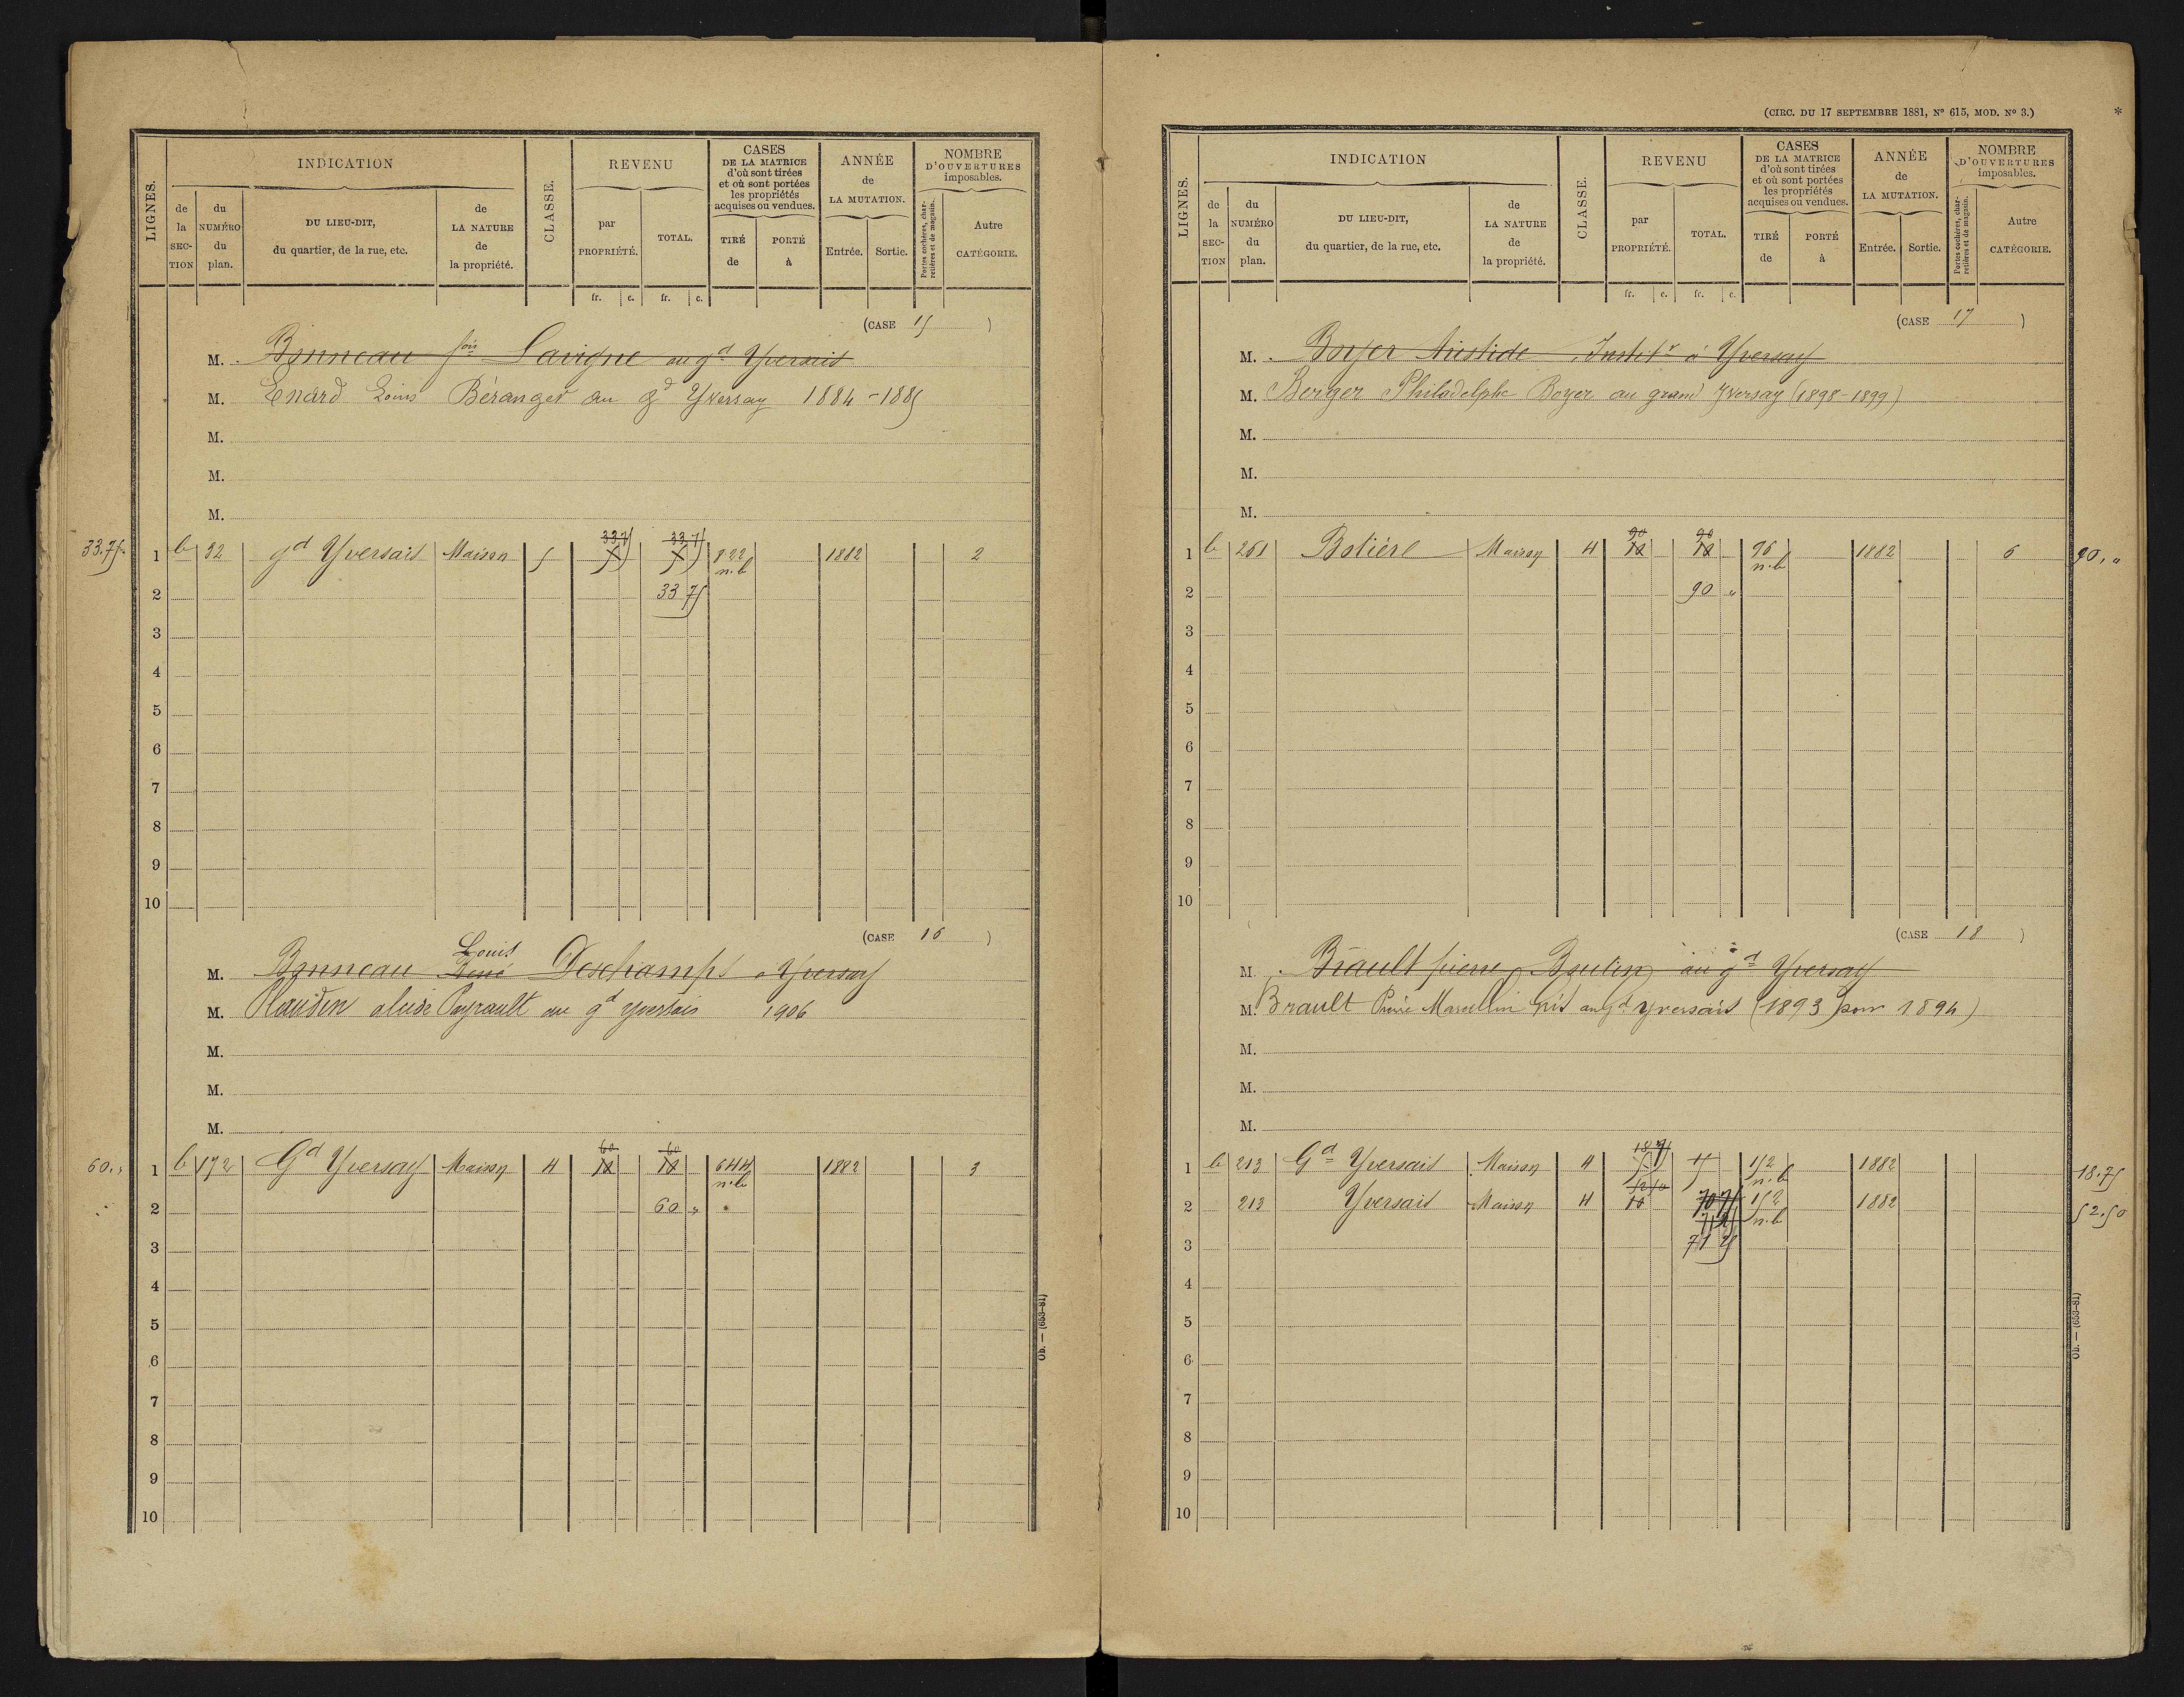 INDICATION
REVENU
CASES
DE LA MATRICE
d'où sont tirées
et où sont portées
les propriétés
acquises ou vendues.
ANNÉE
de
LA MUTATION.
NOMBRE
D'OUVERTURES
imposables.
LIGNES.
de
la
SEC-
TION
du
NUMÉRO
du
plan.
DU LIEU-DIT,
du quartier, de la rue, etc.
de
LA NATURE
de
la propriété.
CLASSE.
par
PROPRIÉTÉ.
TOTAL.
TIRÉ
de
PORTÉ
à
Entrée.
Sortie.
Portes cochères, char-
retières et de magasin.
Autre
CATÉGORIE.
fr. c. fr. c.
(CASE 15 )
M. Bonneau fois Lavigne au gd Yversait
M. Enard Louis Béranger au gd Yversay 1884-1885
M.
M.
M.
33.75 1 b 32 gd Yversait Maison 5 33 75 33 75 822 1882 2
n.b
2 33 75
3
4
5
6
7
8
9
10
(CASE 16 )
Louis
M. Bonneau René Deschamps à Yversay
M. Plaudin Payrault au gd Yversais 1906
M.
M.
M.
60 60
60 „ 1 b 172 Gd Yversay Maison 4 644 1882 3
n.b
2 60 „
3
4
5
6
7
8
9
10
Ob. — (653-81)
(CIRC. DU 17 SEPTEMBRE 1881, N° 615, MOD. N° 3.) *
INDICATION
REVENU
CASES
DE LA MATRICE
d'où sont tirées
et où sont portées
les propriétés
acquises ou vendues.
ANNÉE
de
LA MUTATION.
NOMBRE
D'OUVERTURES
imposables.
LIGNES.
de
la
SEC-
TION
du
NUMÉRO
du
plan.
DU LIEU-DIT,
du quartier, de la rue, etc.
de
LA NATURE
de
la propriété.
CLASSE.
par
PROPRIÉTÉ.
TOTAL.
TIRÉ
de
PORTÉ
à
Entrée.
Sortie.
Portes cochères, char-
retières et de magasin.
Autre
CATÉGORIE.
fr. c. fr. c.
(CASE 17 )
M. Boyer Aristide Institr à Yversay
M. Berger Philadelphe Boyer au grand Yversay (1898-1899)
M.
M.
M.
90 90
1 b 261 Botière Maison 4 96 1882 6 90, „
n.b
2 90 „
3
4
5
6
7
8
9
10
(CASE 18 )
M. Brault pierre Boutin au gd Yversay
M. Brault Pierre Marcellin au Gd Yversais (1893 pour 1894)
M.
M.
M.
18 75
1 b 213 Gd Yversais Maison 4 5 5 152 1882 18.75
n.b
52 50
2 213 Yversais Maison 4 10 152 1882 52.50
n.b
3 71 25
4
5
6
7
8
9
10
Ob. — (653-81)